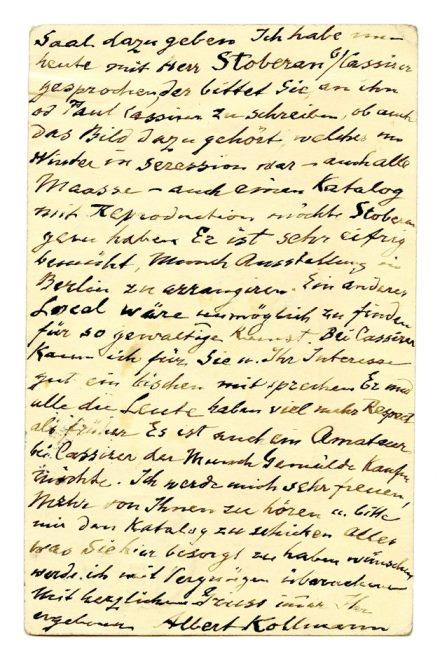 Saal dazu geben Ich habe nun
heute mit Herr Stoberan b/Cassirer
gesprochen der bittet Sie, an ihn
od Paul Cassirer zu schreiben, ob auch
das Bild dazu gehört, welches im
Winter in Sezession war – auch alle
Maasse – auch einen Katalog
mit Reproduction möchte Stoberan
gern haben Er ist sehr eifrig
bemüht, Munch Ausstellung in
Berlin zu arrangieren. Ein anderes
Local wäre unmöglich zu finden
für so gewaltige Kunst. Bei Cassirer
kann ich für Sie u. Ihr Interesse
gut ein bischen mit sprechen Er und
alle die Leute haben viel mehr Respect
als früher Es ist auch ein Amateur
bei Cassirer der Munch Gemälde kaufen
möchte. Ich werde mich sehr freuen,
Mehr von Ihnen zu hören u. bitte
mir den Katalog zu schicken alles
was Sie hier besorgt zu haben wünschen
werde ich mit Vergnügen übernehmen
Mit herzlichem Gruss immer Ihr
ergebener Albert Kollmann